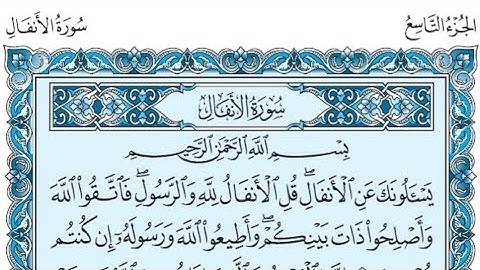 الجُزْءُ التَّاسِعُ
سُورَةُ الأَنفَالِ
سُورَةُ الأَنفَالِ
بِسْمِ اللَّهِ الرَّحْمَٰنِ الرَّحِيمِ
يَسْـَٔلُونَكَ عَنِ ٱلْأَنفَالِ ۖ قُلِ ٱلْأَنفَالُ لِلَّهِ وَٱلرَّسُولِ ۖ فَٱتَّقُوا۟ ٱللَّهَ
وَأَصْلِحُوا۟ ذَاتَ بَيْنِكُمْ ۖ وَأَطِيعُوا۟ ٱللَّهَ وَرَسُولَهُۥٓ إِن كُنتُم